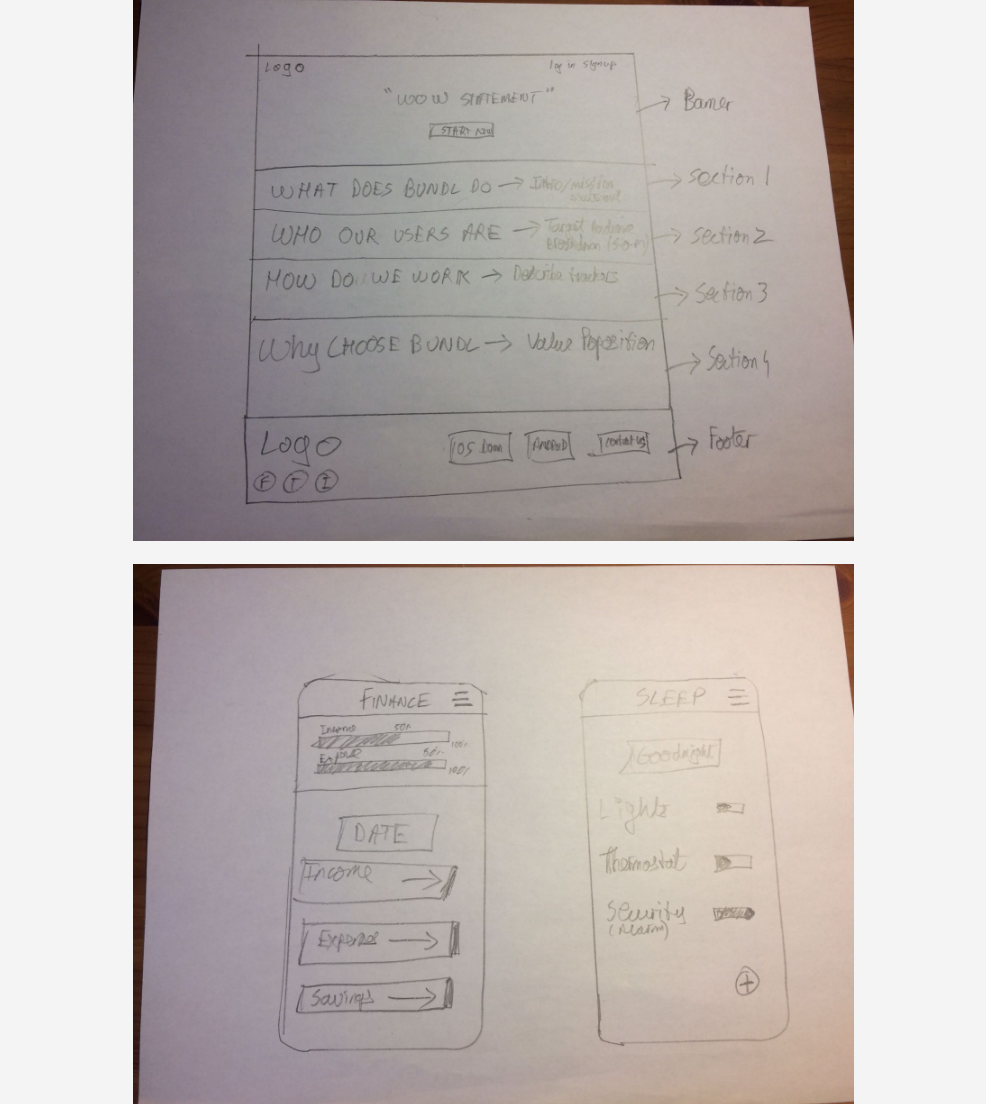 Logo
log in Signup
"WOW STATEMENT"
START NOW
Banner
WHAT DOES BUNDL DO → Intro/mission
Section 1
WHO OUR USERS ARE → Target
Section 2
HOW DO WE WORK → Describe trackers
Section 3
Why CHOOSE BUNDL → Value
Section 4
Logo
IOS
ANDROID
Contact us
F T I
Footer
FINANCE
Income 50%
100%
50%
100%
DATE
Income →
Expense →
Savings →
SLEEP
Goodnight
Lights
Thermostat
Security
(Alarm)
+